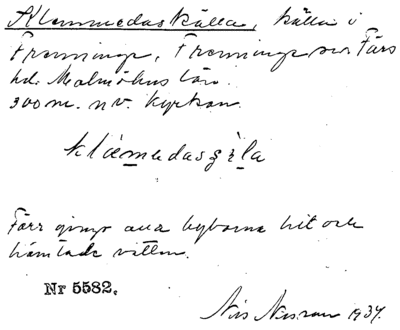 Klammedaskälla, källa i
Frenninge, Frenninge sn. Färs
hd. Malmöhus län.
300 m. n v. kyrkan.
klamedasçɛla
Förr gingo alla byborna hit och
hämtade vatten.
Nr 5582.
Nils Nilsson 1934.